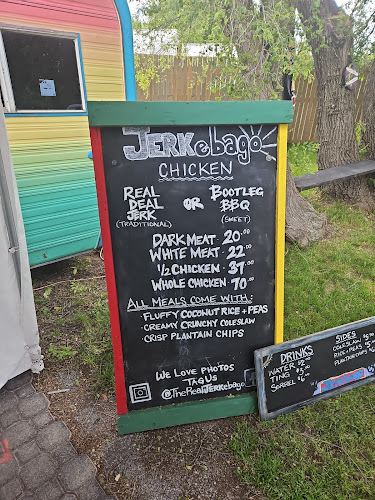 JERKebago
CHICKEN
REAL DEAL JERK (TRADITIONAL)
OR
BOOTLEG BBQ (SWEET)
DARK MEAT 20.00
WHITE MEAT 22.00
1/2 CHICKEN 37.00
WHOLE CHICKEN 70.00
ALL MEALS COME WITH:
· FLUFFY COCONUT RICE + PEAS
· CREAMY CRUNCHY COLESLAW
· CRISP PLANTAIN CHIPS
WE LOVE PHOTOS
TAG US
@TheRealJERKebago
DRINKS
WATER $2.00
TING $5.00
SORREL $6.00
SIDES
COLESLAW
RICE + PEAS
PLANTAIN CHIPS